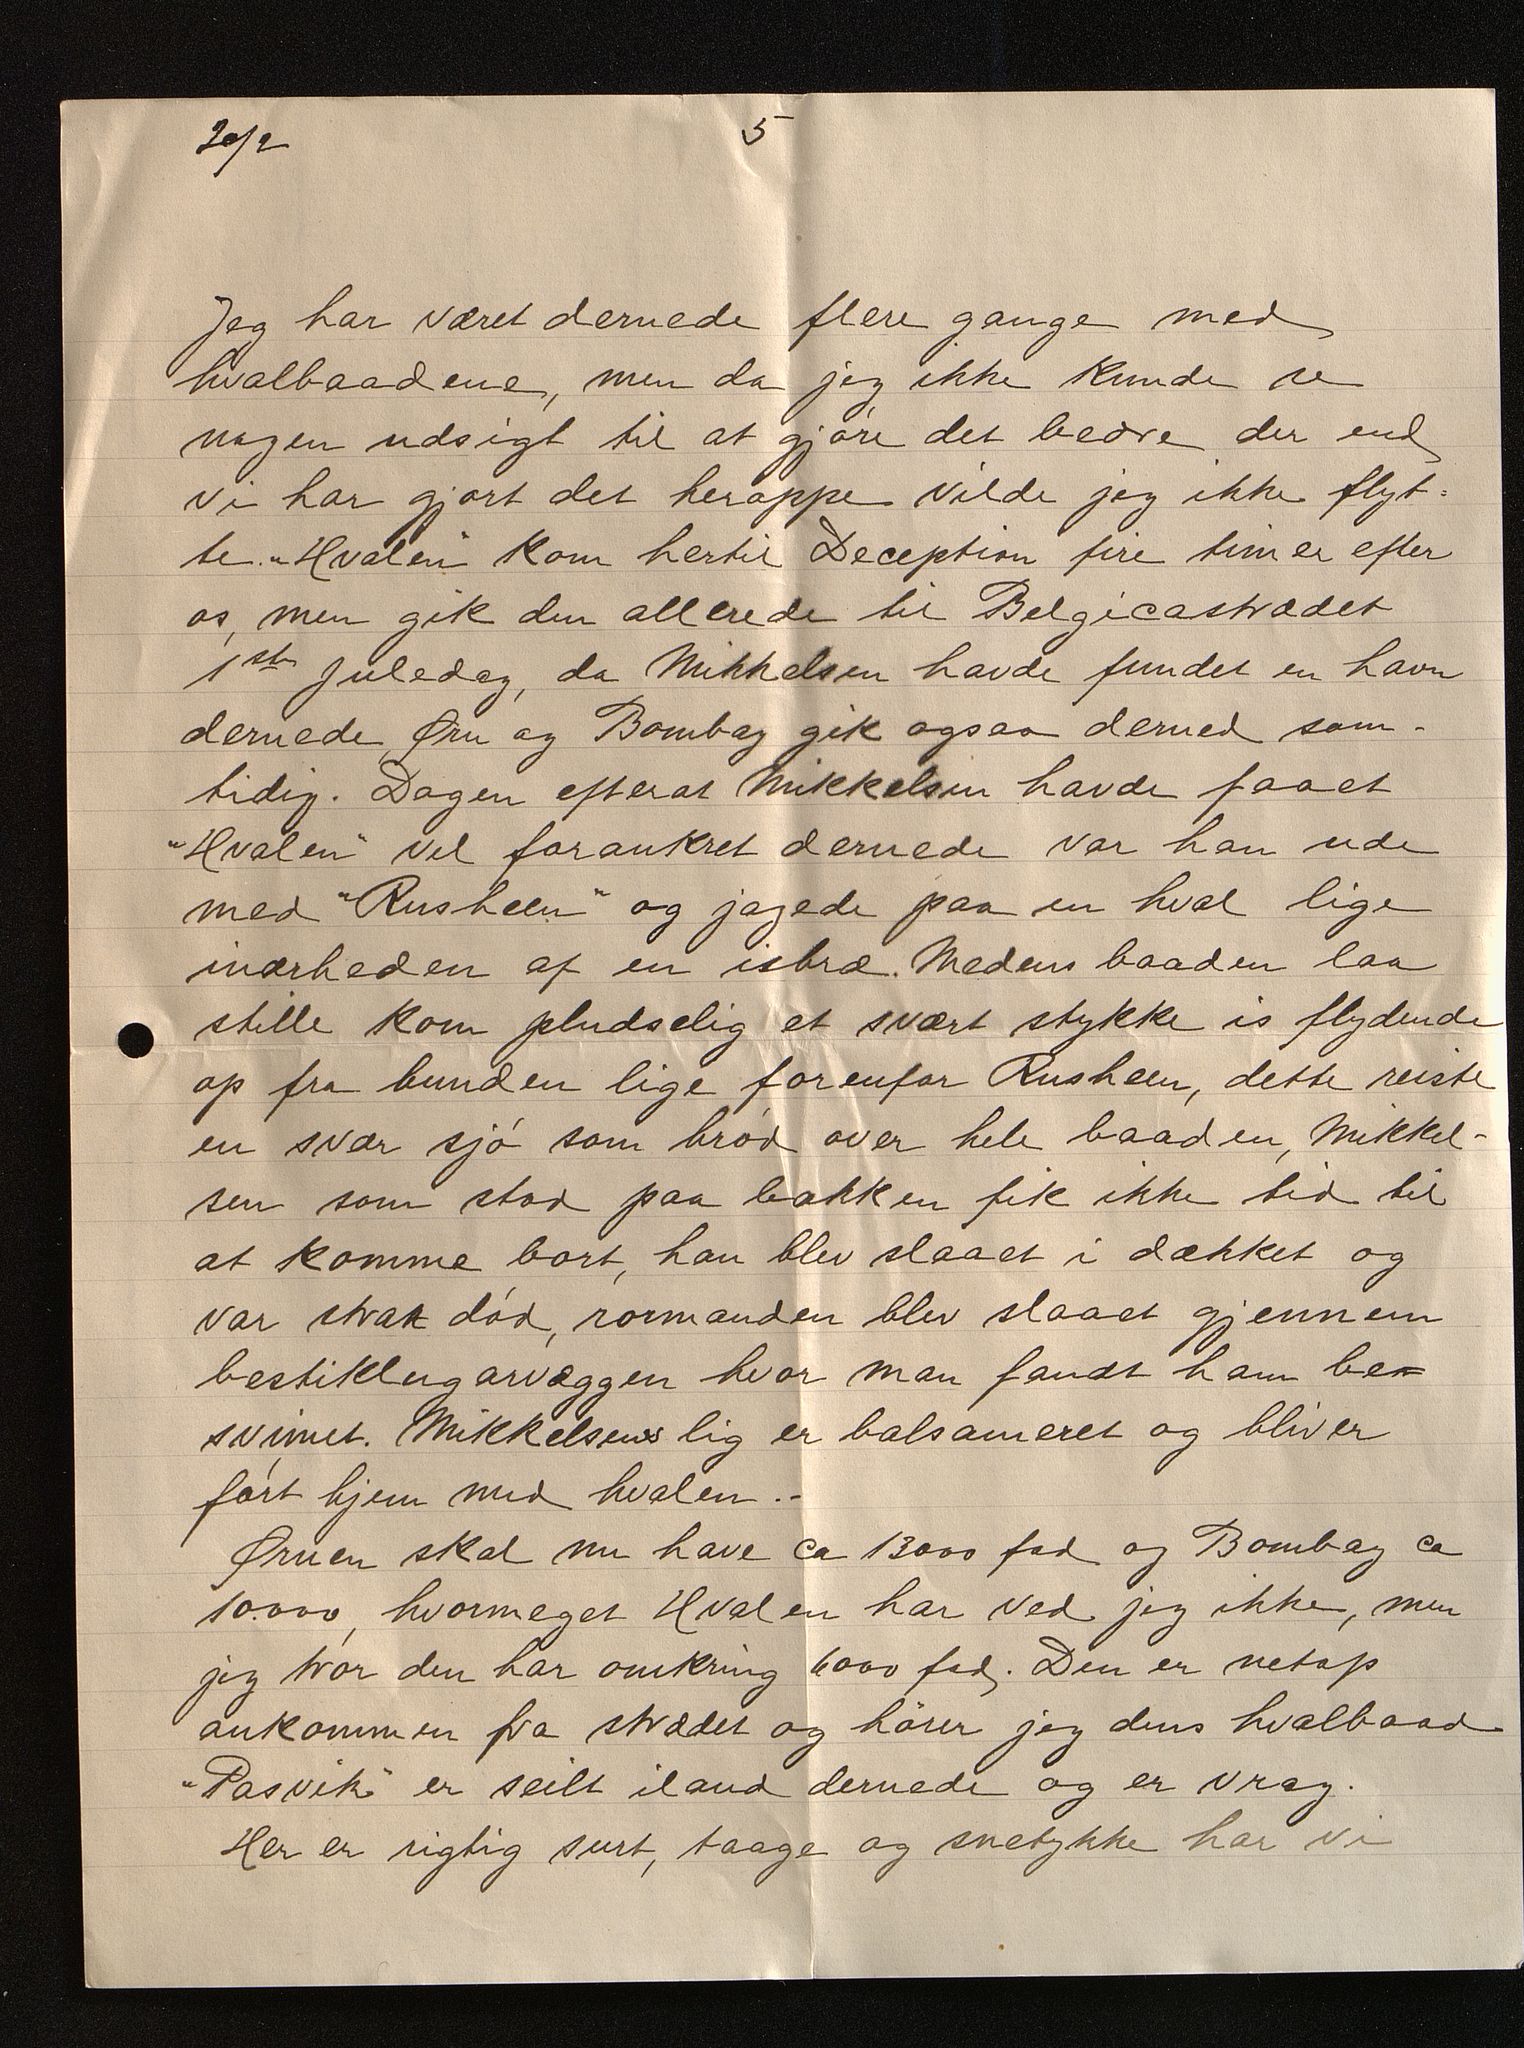 20/2 5
Jeg har været dernede flere gange med
hvalbaadene, men da jeg ikke kunde se
nogen udsigt til at gjøre det bedre der end
vi har gjort det heroppe vilde jeg ikke flyt-
te. "Hvalen" kom hertil Deception fire timer efter
os, men gik den allerede til Belgicastrædet
1ste Juledag, da Mikkelsen havde fundet en havn
dernede, Ørn og Bombay gik ogsaa derned sam-
tidig. Dagen efterat Mikkelsen havde faaet
"Hvalen" vel forankret dernede var han ude
med "Rusheen" og jagede paa en hval lige
inærheden af en isbræ. Medens baaden laa
stille kom pludselig et svært stykke is flydende
op fra bunden lige forenfor Rusheen, dette reiste
en svær sjó som brød over hele baaden, Mikkel-
sen som stod paa bakken fik ikke tid til
at komme bort, han blev slaaet i dækket og
var strax død, rormanden blev slaaet gjennem
bestiklugarvæggen hvor man fandt ham be-
svimet. Mikkelsens lig er balsameret og bliver
ført hjem med hvalen.-
Ørnen skal nu have ca 13000 fad og Bombay ca
10.000, hvormeget Hvalen har ved jeg ikke, men
jeg trór den har omkring 6000 fad. Den er netop
ankommen fra strædet og hører jeg dens hvalbaad
"Pasvik" er seilt iland dernede og er vrag.
Her er rigtig surt, taage og snetykke har vi